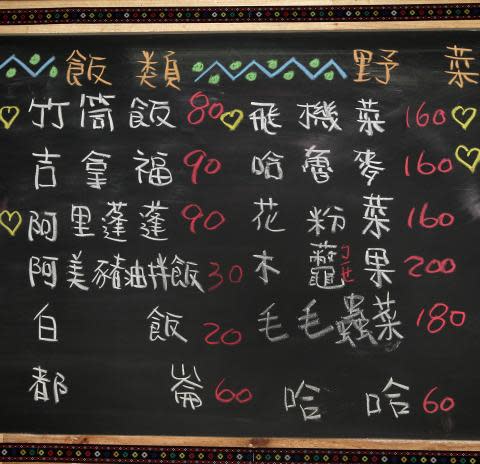 飯類
竹筒飯 80
吉拿福 90
阿里蓬蓬 90
阿美豬油拌飯 30
白飯 20
都崙 60
野菜
飛機菜 160
哈魯麥 160
花粉菜 160
木虌果 200
ㄅㄧㄝ
毛毛蟲菜 180
哈哈 60